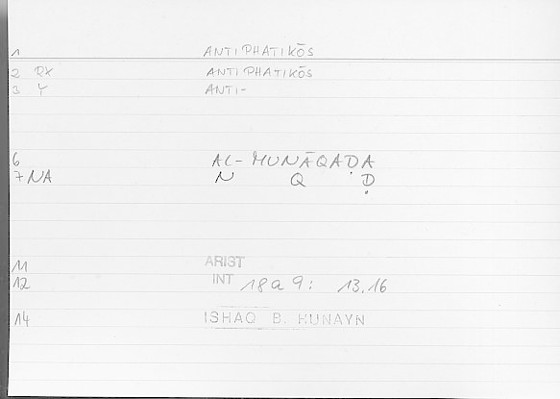 1 ANTIPHATIKŌS
2 DX ANTIPHATIKŌS
3 Y ANTI-
6 AL-MUNĀQAḌA
7 NA N Q Ḍ
11 ARIST
12 INT 18a9: 13.16
14 ISHAQ B. HUNAYN